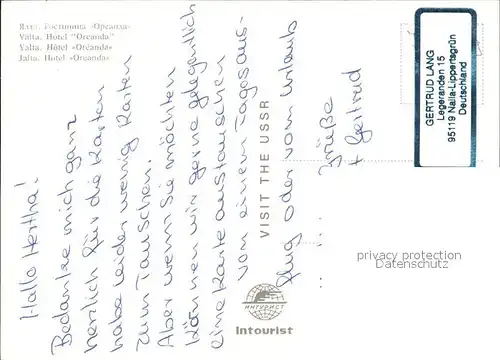 Ялта. Гостиница «Ореанда»
Yalta. Hotel "Oreanda"
Yalta. Hôtel «Oréanda»
Jalta. Hotel «Oreanda»
Hallo Hertha!
Bedanke mich ganz
herzlich für die Karten
habe leider wenig Karten
zum Tauschen.
Aber wenn Sie möchten
können wir gerne gelegentlich
eine Karte austauschen
von einem Tagesaus-
flug oder vom Urlaub
Grüße
+ Gertrud
VISIT THE USSR
ИНТУРИСТ
Intourist
GERTRUD LANG
Legeranden 15
95119 Naila-Lippertsgrün
Deutschland
privacy protection
Datenschutz